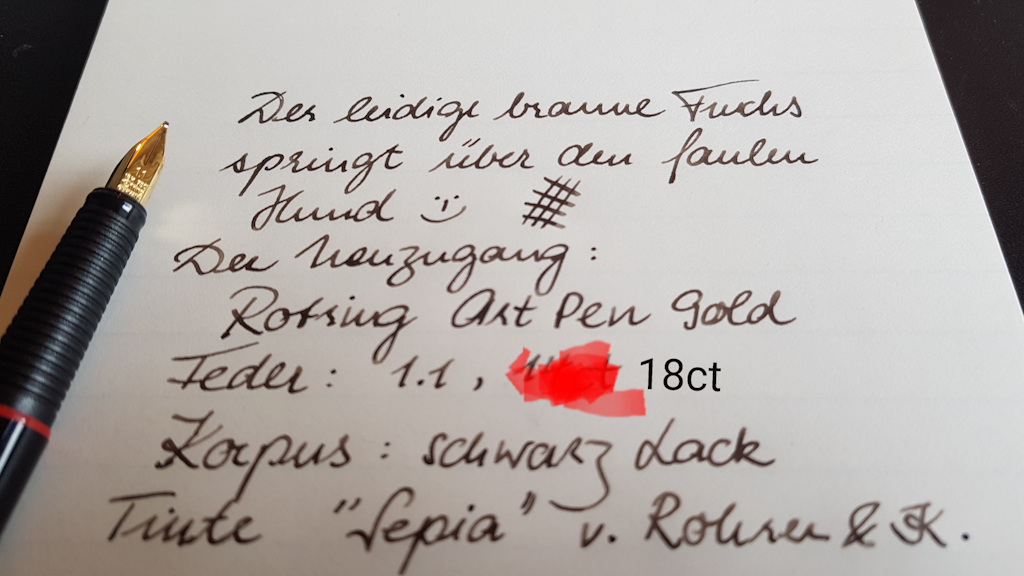 Der leidige braune Fuchs
springt über den faulen
Hund
Der Neuzugang:
Rotring Art Pen Gold
Feder: 1.1, 18ct
Korpus: schwarz Lack
Tinte "Sepia" v. Rohrer & K.